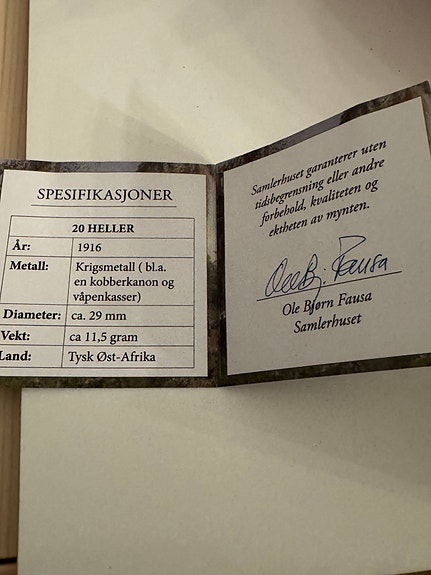 SPESIFIKASJONER
20 HELLER
År: 1916
Metall: Krigsmetall ( bl.a.
en kobberkanon og
våpenkasser)
Diameter: ca. 29 mm
Vekt: ca 11,5 gram
Land: Tysk Øst-Afrika
Samlerhuset garanterer uten
tidsbegrensning eller andre
forbehold, kvaliteten og
ektheten av mynten.
Ole Bj. Fausa
Ole Bjørn Fausa
Samlerhuset